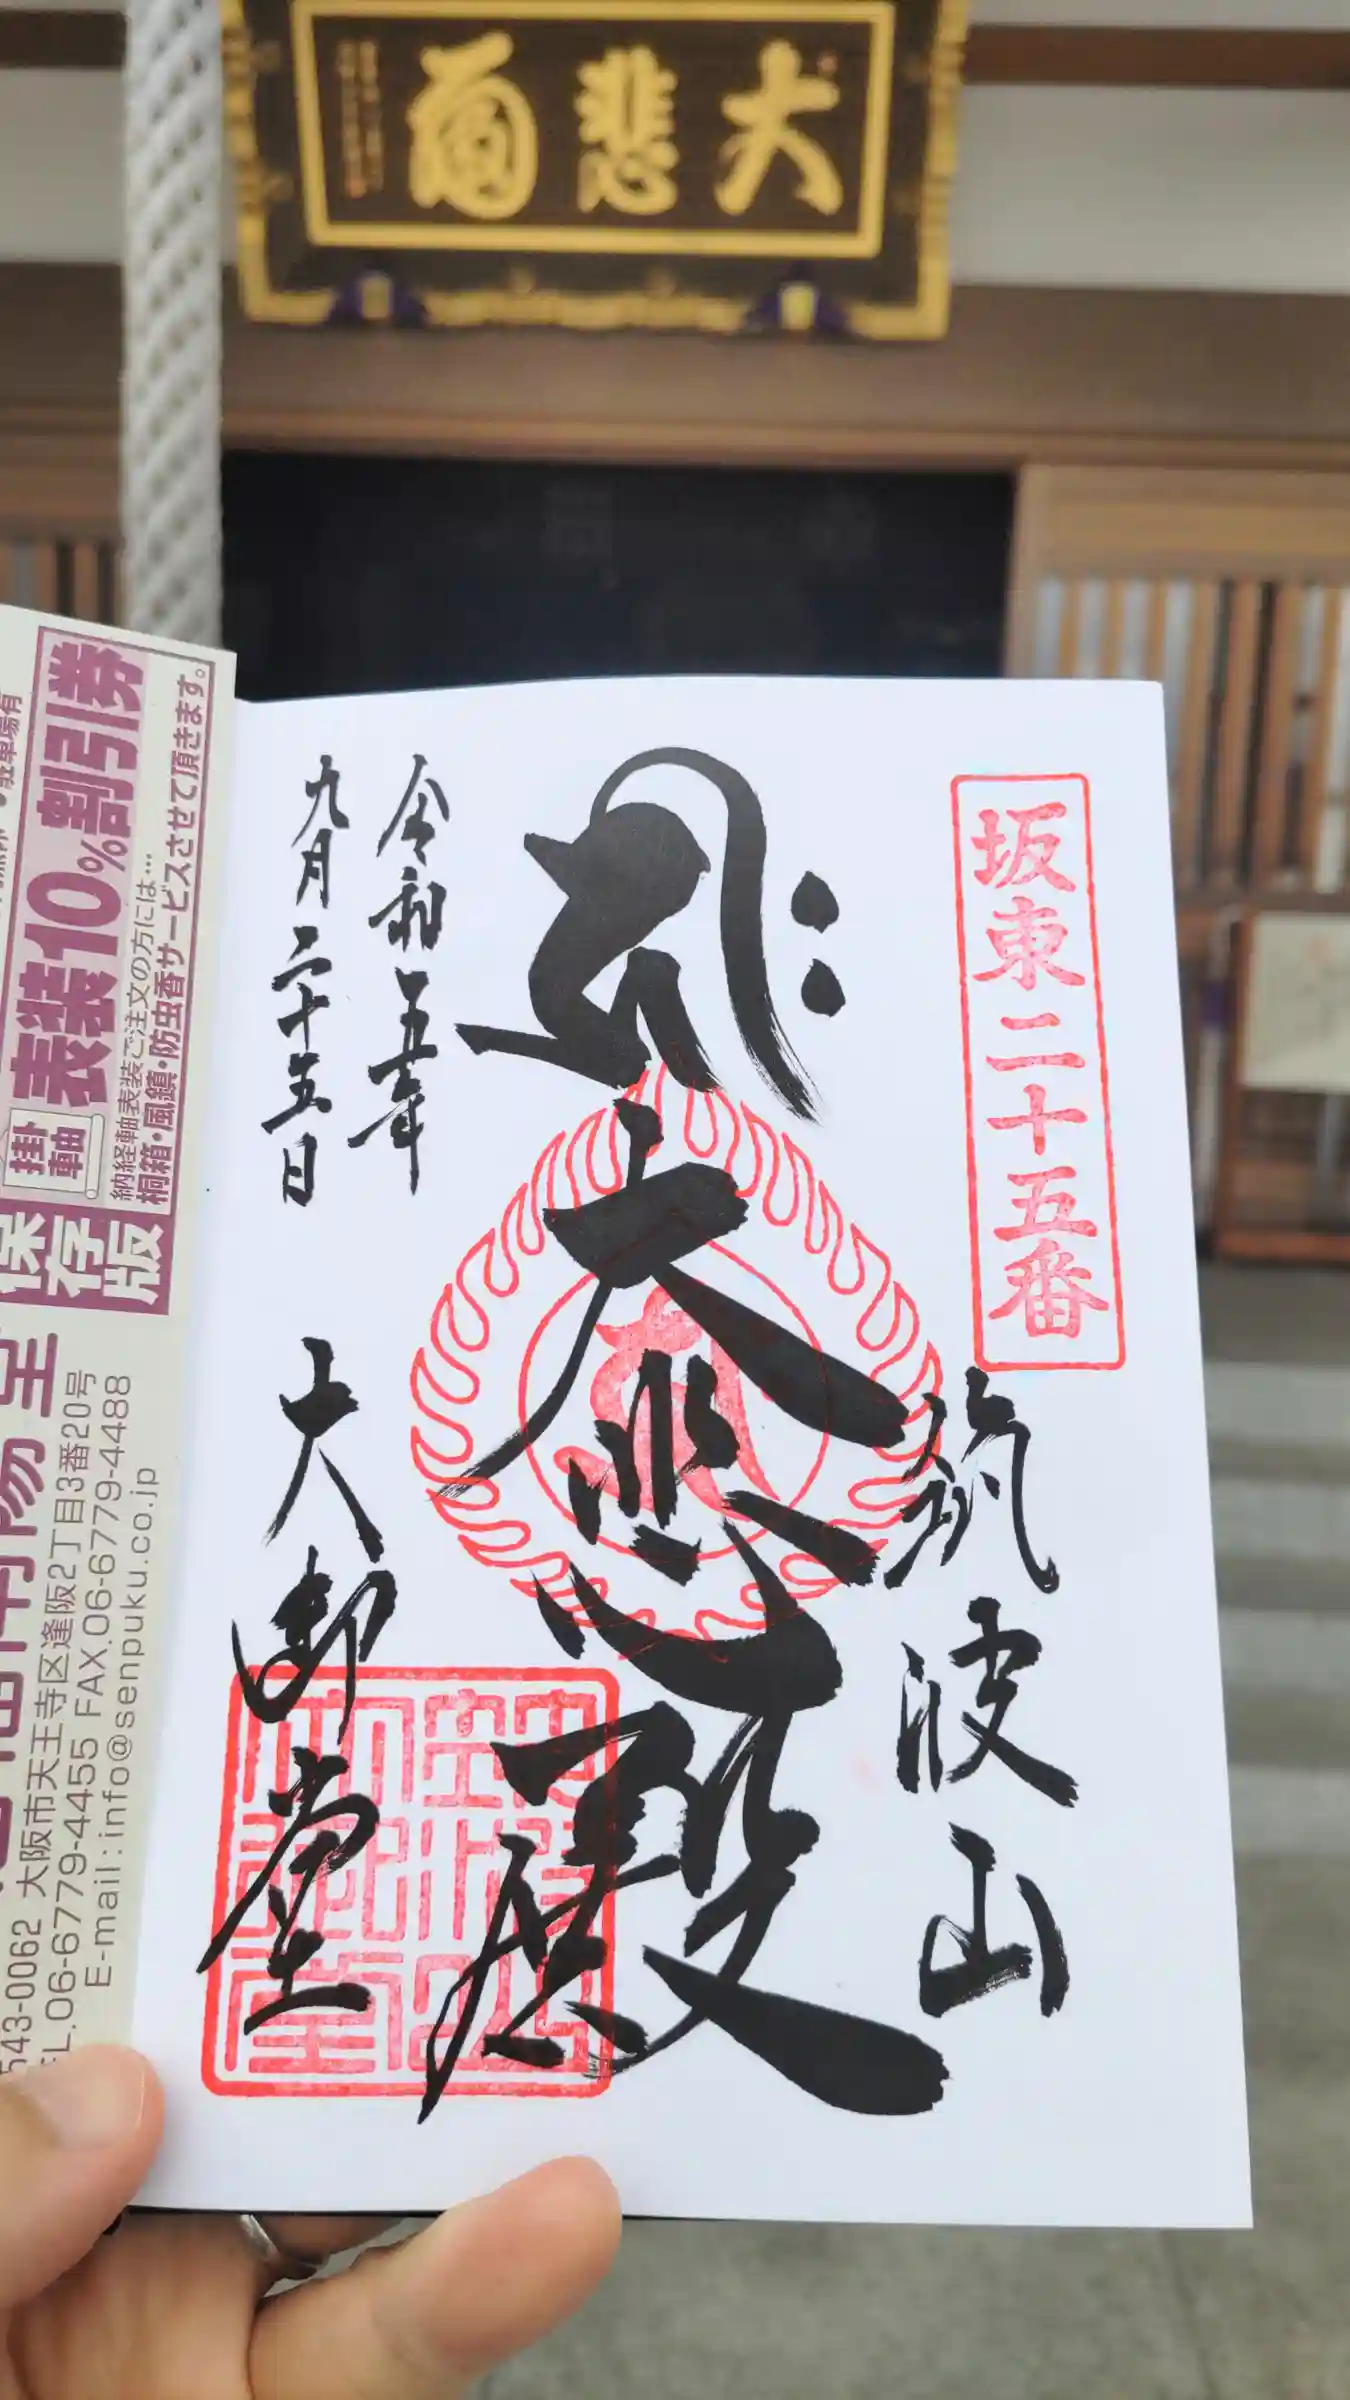 大悲閣
坂東二十五番
筑波山
大悲殿
令和五年
九月二十五日
大御堂
表装10%割引券
納経軸表装ご注文の方には…
桐箱・風鎮・防虫香サービスさせて頂きます。
掛軸
保存版
543-0062 大阪市天王寺区逢阪2丁目3番20号
EL.06-6779-4455 FAX.06-6779-4488
E-mail:info@senpuku.co.jp